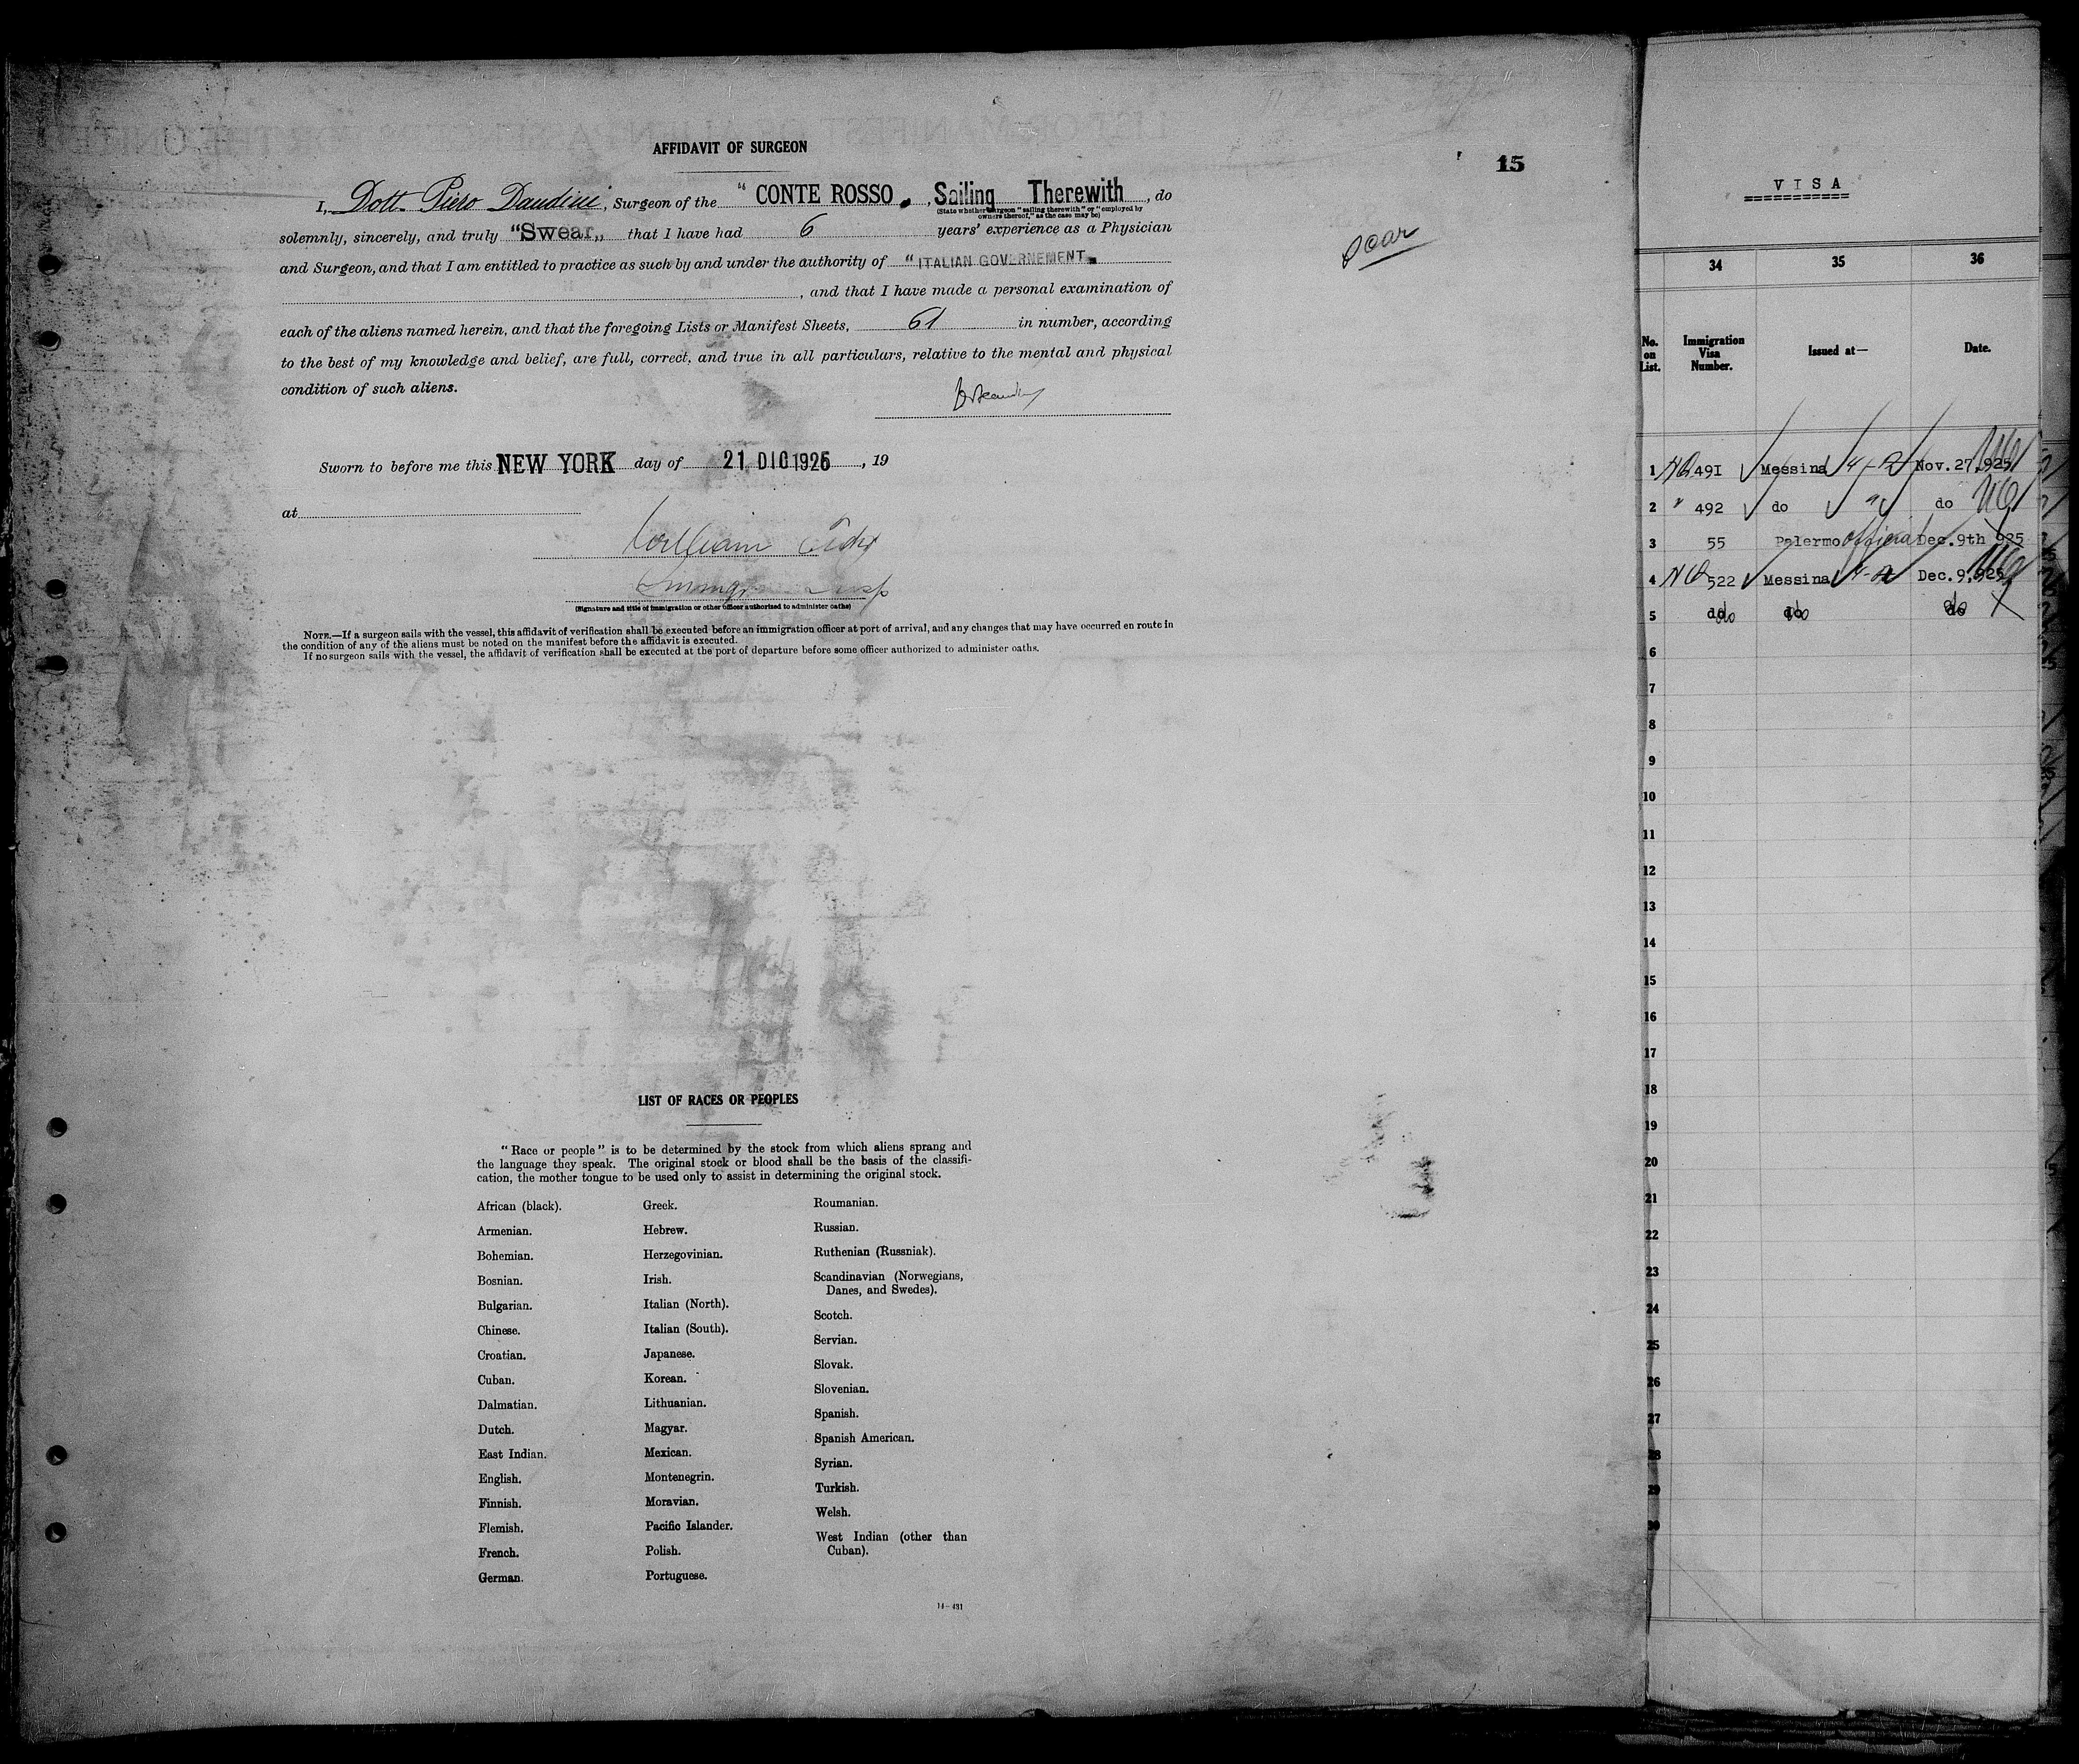 AFFIDAVIT OF SURGEON
15
I, Dott. Piero Dandini, Surgeon of the "CONTE ROSSO", Sailing Therewith, do
(State whether surgeon "sailing therewith" or "employed by
owners thereof," as the case may be)
solemnly, sincerely, and truly "Swear" that I have had 6 years' experience as a Physician
scar
and Surgeon, and that I am entitled to practice as such by and under the authority of "ITALIAN GOVERNEMENT"
, and that I have made a personal examination of
each of the aliens named herein, and that the foregoing Lists or Manifest Sheets, 61 in number, according
to the best of my knowledge and belief, are full, correct, and true in all particulars, relative to the mental and physical
condition of such aliens.
Sworn to before me this NEW YORK day of 21 DIC 1925, 19
at
William
Immigr Insp
(Signature and title of immigration or other officer authorized to administer oaths)
NOTE.—If a surgeon sails with the vessel, this affidavit of verification shall be executed before an immigration officer at port of arrival, and any changes that may have occurred en route in
the condition of any of the aliens must be noted on the manifest before the affidavit is executed.
If no surgeon sails with the vessel, the affidavit of verification shall be executed at the port of departure before some officer authorized to administer oaths.
LIST OF RACES OR PEOPLES
"Race or people" is to be determined by the stock from which aliens sprang and
the language they speak. The original stock or blood shall be the basis of the classifi-
cation, the mother tongue to be used only to assist in determining the original stock.
African (black).
Armenian.
Bohemian.
Bosnian.
Bulgarian.
Chinese.
Croatian.
Cuban.
Dalmatian.
Dutch.
East Indian.
English.
Finnish.
Flemish.
French.
German.
Greek.
Hebrew.
Herzegovinian.
Irish.
Italian (North).
Italian (South).
Japanese.
Korean.
Lithuanian.
Magyar.
Mexican.
Montenegrin.
Moravian.
Pacific Islander.
Polish.
Portuguese.
Roumanian.
Russian.
Ruthenian (Russniak).
Scandinavian (Norwegians,
Danes, and Swedes).
Scotch.
Servian.
Slovak.
Slovenian.
Spanish.
Spanish American.
Syrian.
Turkish.
Welsh.
West Indian (other than
Cuban).
14—431
VISA
34 35 36
No. on List. Immigration Visa Number. Issued at— Date.
1 NQ 491 Messina 4-2 Nov. 27, 925
2 " 492 do " do
3 55 Palermo official Dec. 9th 925
4 NQ 522 Messina 4-2 Dec. 9, 925
5 do do do
6
7
8
9
10
11
12
13
14
15
16
17
18
19
20
21
22
23
24
25
26
27
28
29
30